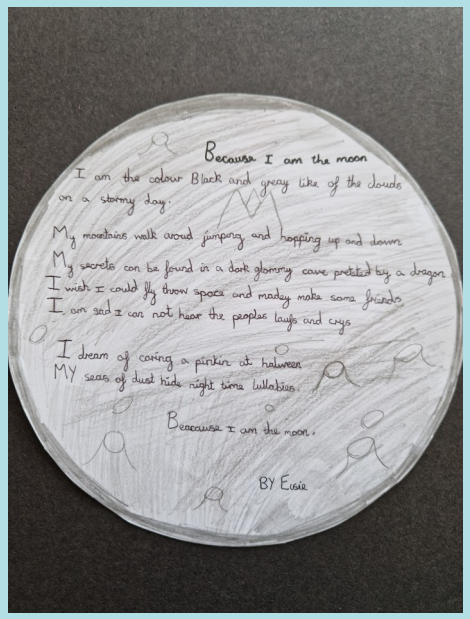 Because I am the moon
I am the colour Black and greay like of the clouds
on a stormy day.
My mountains walk aroud jumping and hopping up and down
My secrets can be found in a dark glommy cave pretited by a dragon
I wish I could fly throw space and madey make some friends
I am sad I can not hear the peoples laufs and crys
I dream of caring a pinkin at halween
MY seas of dust hide night time lullabies.
Beacause I am the moon.
BY